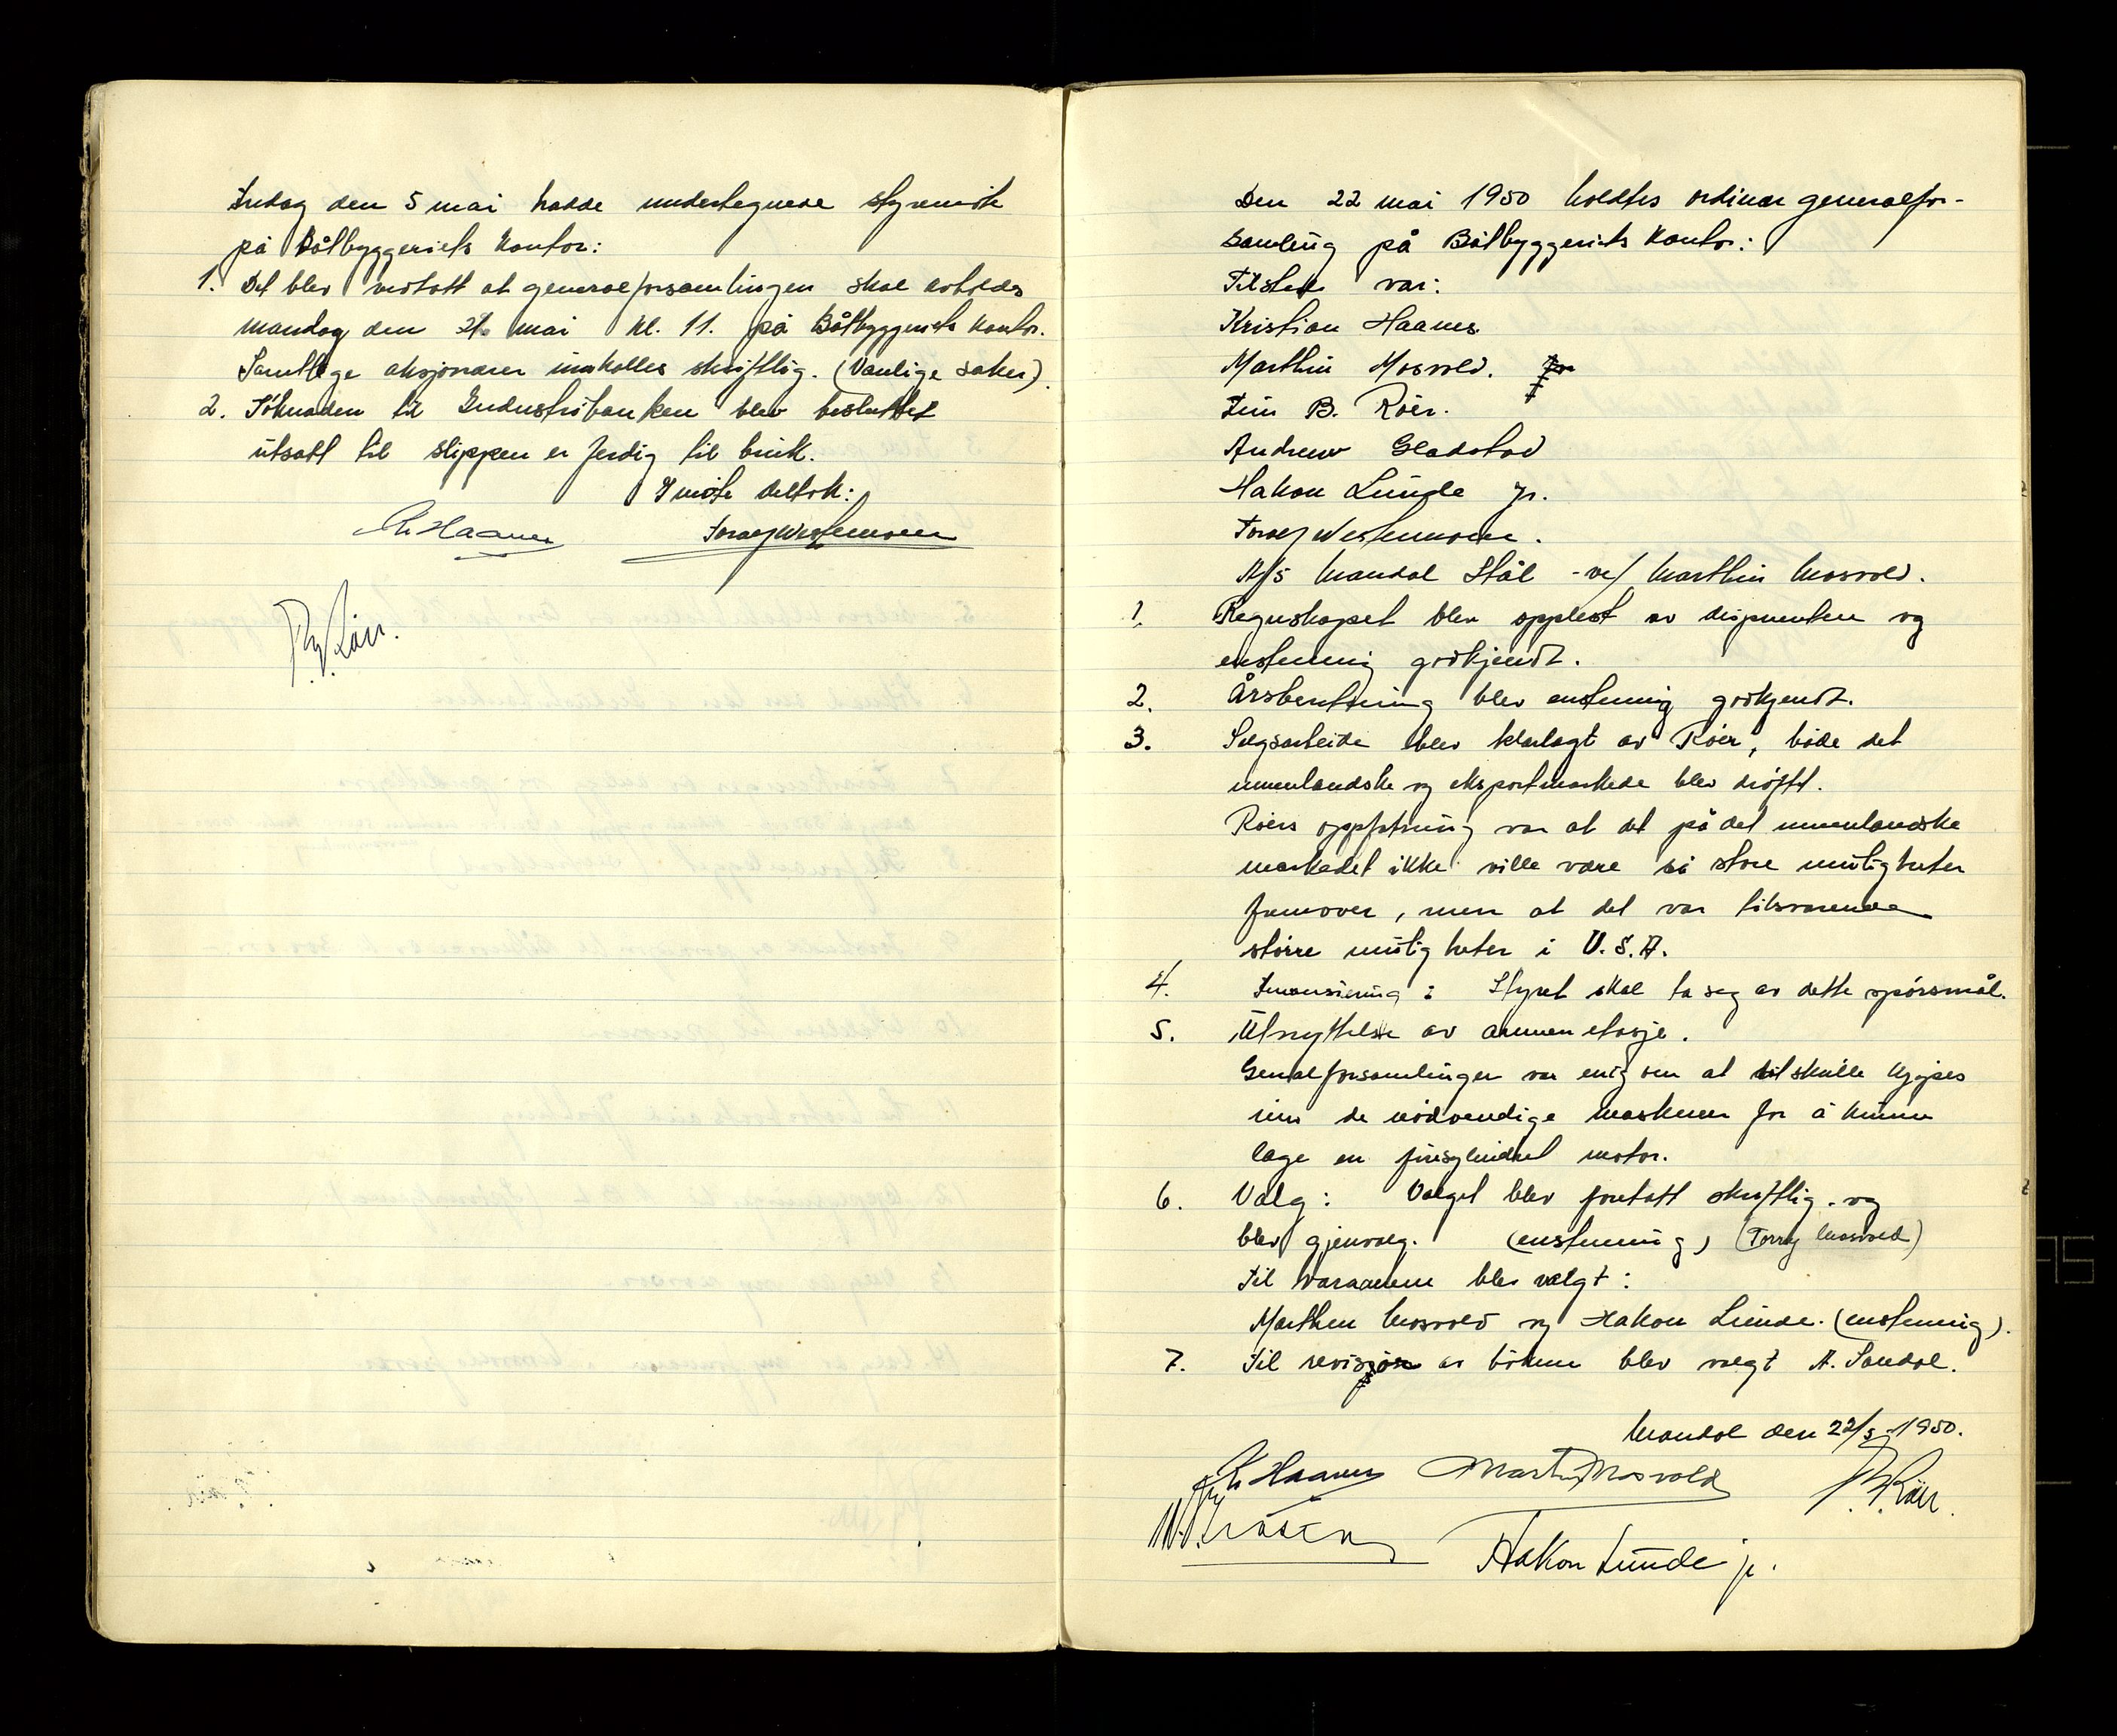 Fredag den 5 mai hadde undertegnede styremøte
på Båtbyggeriets kontor:
1. Det blev vedtatt at generalforsamlingen skal avholdes
mandag den mai kl. 11. på Båtbyggeriets kontor.
Samtlige aksjonærer innkalles skriftlig. (Vanlige saker).
2. Søknaden til Industribanken blev besluttet
utsatt til slippen er ferdig til bruk.
I møte deltok:
Kr Haanes Toralf Westermoen
Røer.
Den 22 mai 1950 holdtes ordinær generalfor-
samling på Båtbyggeriets kontor:
Tilstede var:
Kristian Haanes
Marthin Mosvold.
Finn B. Röer.
Andrew Gladstad
Hakon Lunde jr.
Toralf Westermoen.
A/S Mandal Stål - ve/ Marthin Mosvold.
1. Regnskapet blev opplest av disponenten og
enstemmig godkjendt.
2. Årsberetning blev enstemmig godkjendt.
3. Salgsarbeide blev klarlagt av Röer, både det
innenlandske og eksportmarkede blev drøftet.
Röers oppfatning var at det på det innenlandske
markedet ikke ville være så store muligheter
fremover, men at det var tilsvarende
större muligheter i U.S.A.
4. Finansiering: Styret skal ta seg av dette spörsmål.
5. Utnyttelse av annen etasje.
Generalforsamlingen var enig om at det skulle kjøpes
inn de nödvendige maskiner for å kunne
lage en firesylindret motor.
6. Valg: Valget blev foretatt skriftlig. og
blev gjenvalg. (enstemmig) (Torrey Mosvold)
Til varamenn blev valgt:
Marthin Mosvold og Hakon Lunde. (enstemmig).
7. Til revisjon av bökene blev valgt A. Sandal.
Mandal den 22/5 - 1950.
Kr Haanes Marthin Mosvold Röer.
Hakon Lunde jr.